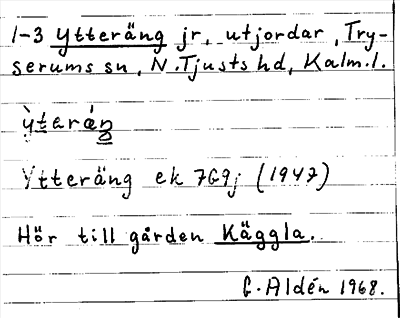 1-3 Ytteräng jr, utjordar, Try-
serums sn, N. Tjusts hd, Kalm. l.
ỳterán
Ytteräng ek 7G9j (1947)
Hör till gården Käggla.
G. Aldén 1968.